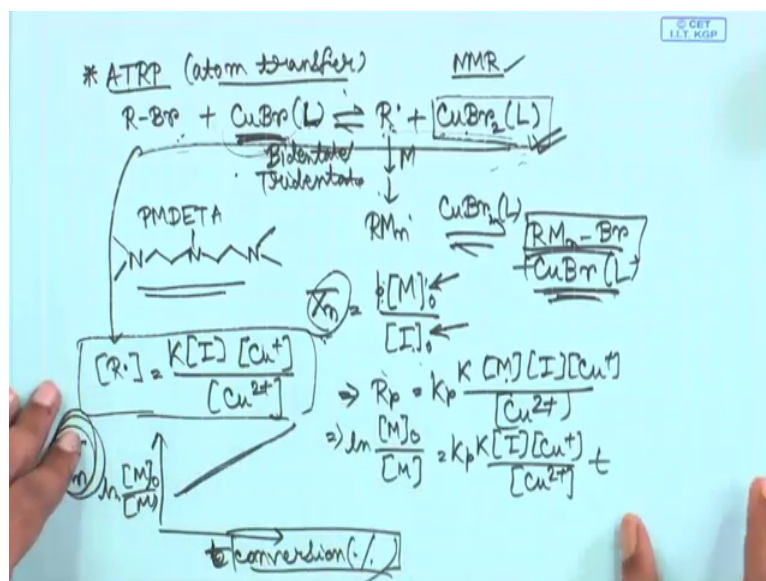 © CET
I.I.T. KGP
* ATRP (atom transfer)
NMR ✓
R-Br + CuBr(L) ⇌ R· + CuBr₂(L)
Bidentate/
Tridentate
↓ M
PMDETA
RMn·
CuBr₂(L)
RMn-Br
+ CuBr(L)
N N N
X̄n = p[M]₀ / [I]₀
[R·] = K[I] [Cu⁺] / [Cu²⁺]
⇒ Rp = Kp K [M][I][Cu⁺] / [Cu²⁺]
⇒ ln [M]₀ / [M] = Kp K[I][Cu⁺] / [Cu²⁺] t
n
ln [M]₀ / [M]
conversion (%)